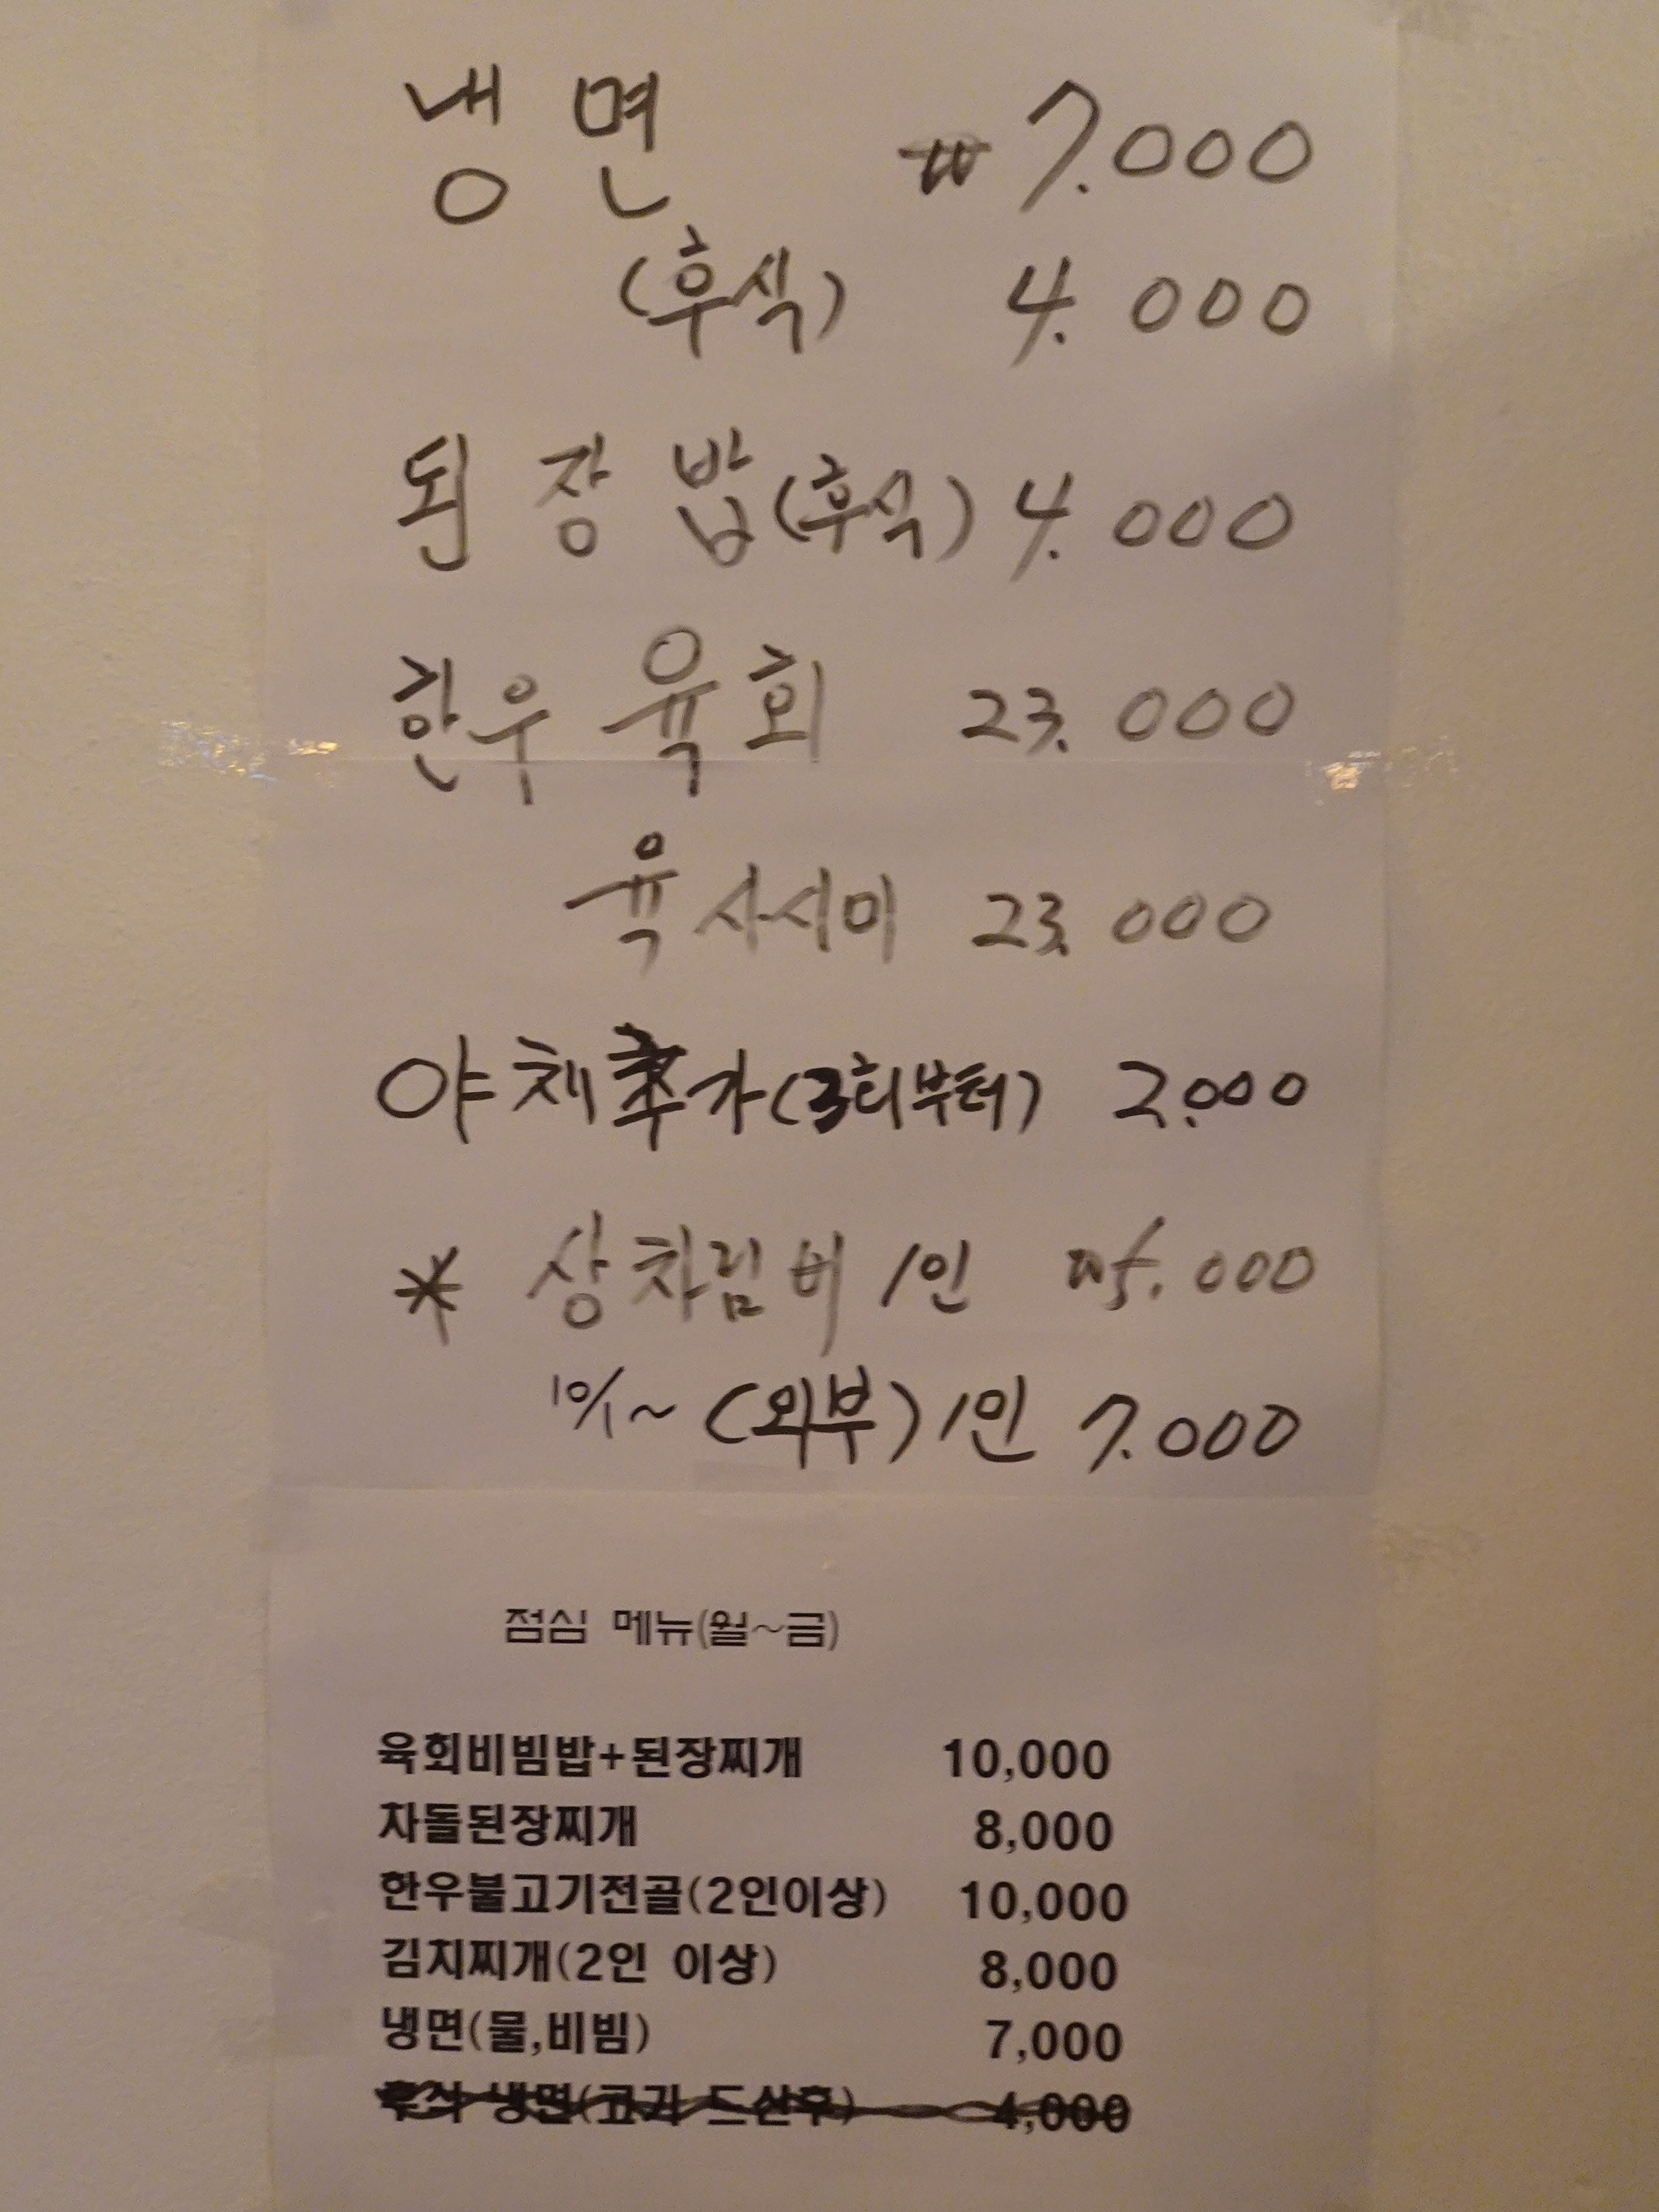 냉면 ₩7.000
(후식) 4.000
된장밥(후식) 4.000
한우육회 23.000
육사시미 23.000
야채추가(3회부터) 2.000
* 상차림비 1인 ₩5.000
10/1~ (외부) 1인 7.000
점심 메뉴(월~금)
육회비빔밥+된장찌개 10,000
차돌된장찌개 8,000
한우불고기전골(2인이상) 10,000
김치찌개(2인 이상) 8,000
냉면(물,비빔) 7,000
후식 냉면(고기 드신후) 4,000